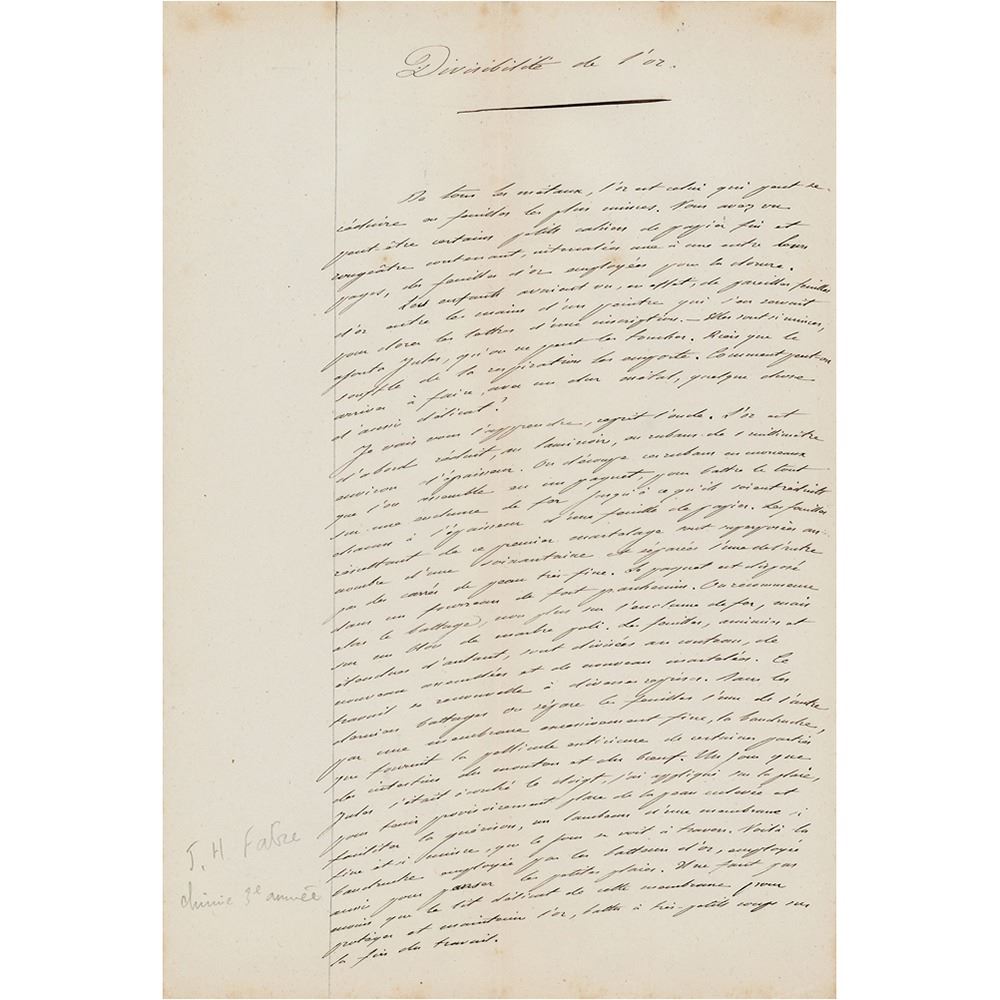 Divisibilité de l'or.
De tous les métaux, l'or est celui qui peut se
réduire en feuilles les plus minces. Vous avez vu
peut être certains petits cahiers de papier fin et
rougeâtre contenant, intercalées une à une entre leurs
pages, des feuilles d'or employées pour la dorure.
Les enfants avaient vu, en effet, de pareilles feuilles
d'or entre les mains d'un peintre qui s'en servait
pour dorer les lettres d'une inscription. — Elles sont si minces,
ajouta Jules, qu'on ne peut les toucher. Rien que le
souffle de la respiration les emporte. Comment peut-on
arriver à faire, avec un dur métal, quelque chose
d'aussi délicat?
Je vais vous l'apprendre, reprit l'oncle. L'or est
d'abord réduit, au laminoir, en rubans de 1 millimètre
environ d'épaisseur. On découpe ces rubans en morceaux
que l'on assemble en un paquet, pour battre le tout
sur une enclume de fer jusqu'à ce qu'ils soient réduits
chacun à l'épaisseur d'une feuille de papier. Les feuilles
résultant de ce premier martelage sont superposées au
nombre d'une soixantaine et séparées l'une de l'autre
par des carrés de peau très-fine. Le paquet est disposé
dans un fourreau de fort parchemin. On recommence
alors le battage, non plus sur l'enclume de fer, mais
sur un bloc de marbre poli. Les feuilles, amincies et
étendues d'autant, sont divisées au couteau, de
nouveau assemblées et de nouveau martelées. Ce
travail se renouvelle à diverses reprises. Dans les
derniers battages on sépare les feuilles l'une de l'autre
par une membrane excessivement fine, la baudruche,
que fournit la pellicule extérieure de certaines parties
des intestins du mouton et du boeuf. Un jour que
Jules s'était écorché le doigt, j'ai appliqué sur la plaie,
pour tenir provisoirement place de la peau enlevée et
faciliter la guérison, un lambeau d'une membrane si
fine et si mince, que le jour se voit à travers. Voilà la
baudruche employée par les batteurs d'or, employée
aussi pour panser les petites plaies. Il ne faut pas
moins que le lit délicat de cette membrane pour
protéger et maintenir l'or, battu à très-petits coups sur
la fin du travail.
J. H. Fabre
chimie 3e année